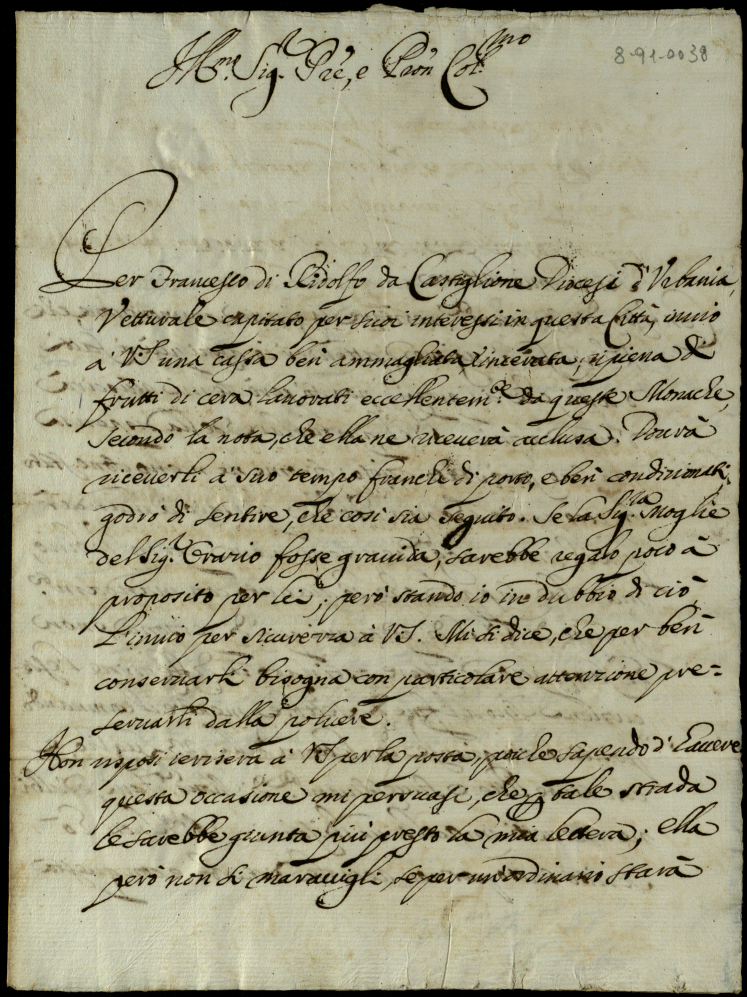 8-91-0038
Ill.mo Sig.r P're, e P'ron Col.mo
Per Francesco di Ridolfo da Castiglione Diocesi d'Urbania,
Vetturale capitato per suoi interessi in questa Città, invio
à VS una cassa ben ammagliata, incerata, ripiena di
frutti di cera lavorati eccellentem.te da queste Monache,
secondo la nota, che ella ne riceverà acclusa. Dovrà
riceverli à suo tempo franchi di porto, e ben condizionati,
godrò di sentire, che così sia seguito. Se la Sig.ra Moglie
del Sig.r Orazio fosse gravida, sarebbe regalo poco à
proposito per lei; però stando io in dubbio di ciò
l'invio per sicurezza à VS. Mi si dice, che per ben
conservarli bisogna con particolare attenzione pre=
servarli dalla polvere.
Non risposi ier sera à VS per la posta, poiche sapendo d'havere
questa occasione mi persuasi, che p tale strada
le sarebbe giunta più presto la mia lettera; ella
però non si maravigli, se per un ordinario starà